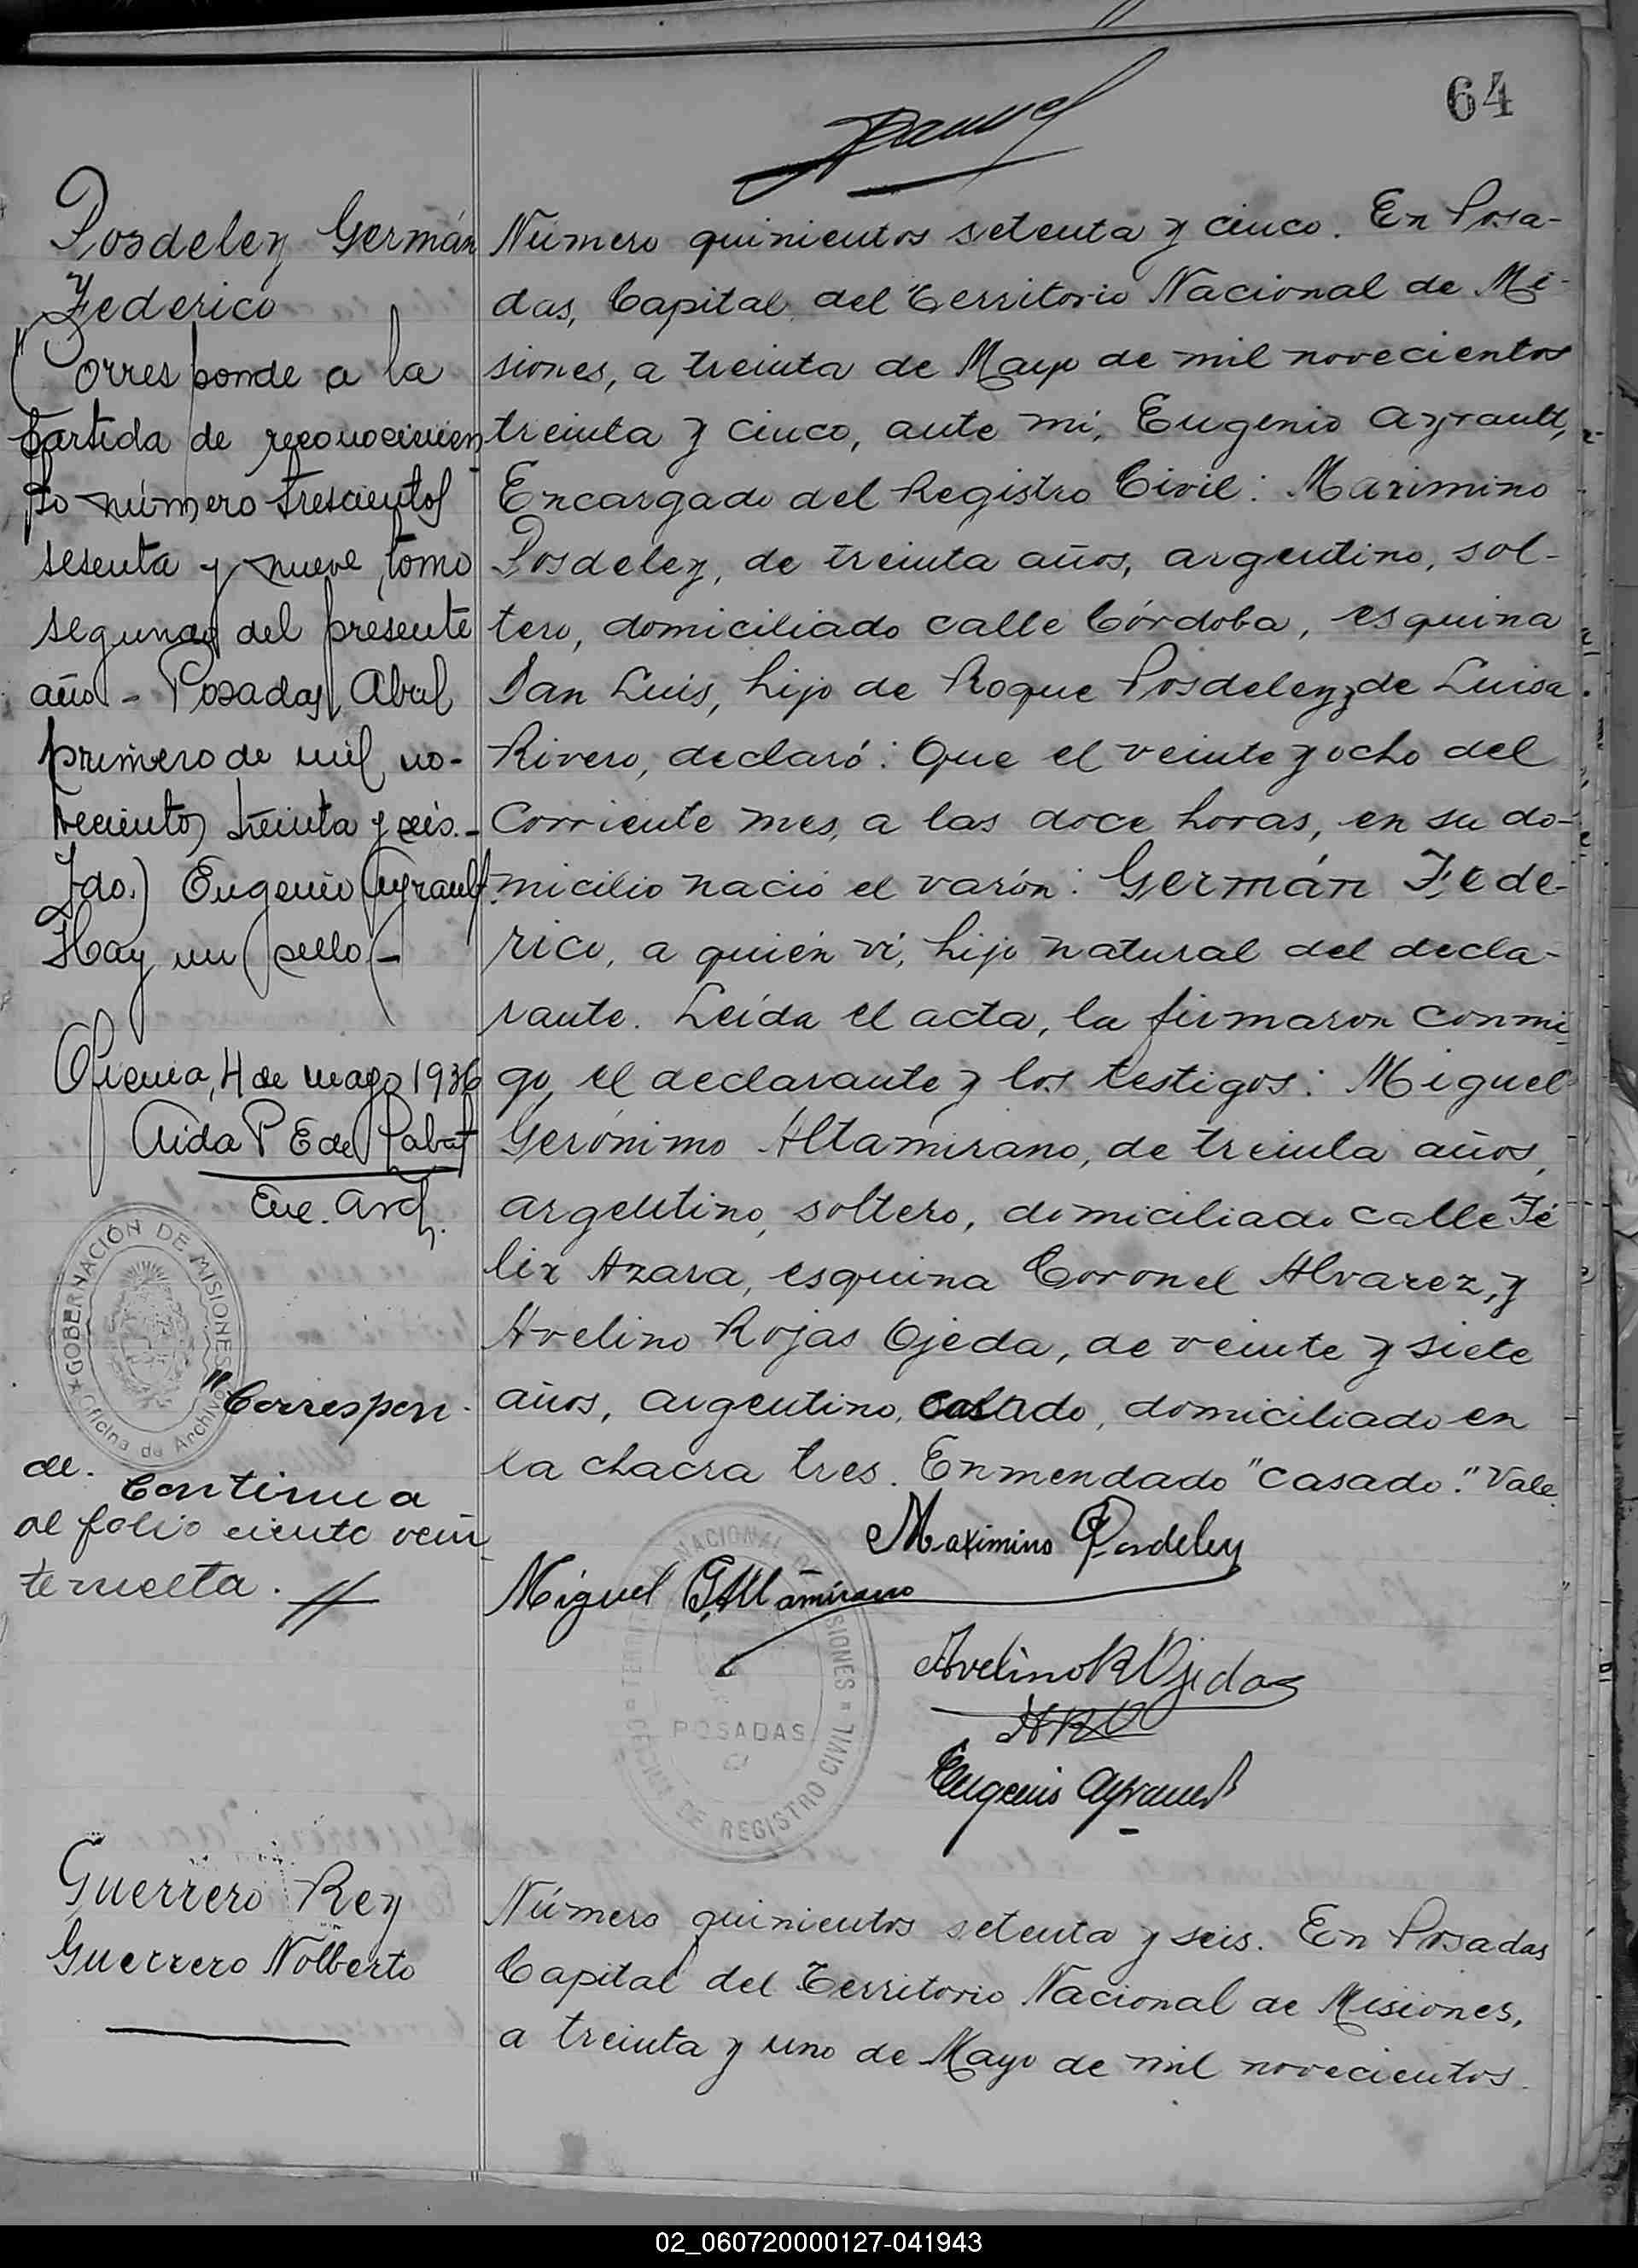 64
Posdeley Germán
Federico
"Corresponde a la
partida de reconocimien-
to número trescientos
sesenta y nueve, tomo
segundo del presente
año - Posadas, Abril
primero de mil no-
vecientos treinta y seis.-
Fdo.) Eugenio Ayrault.
Hay un sello -
Oficina, 4 de mayo 1936
Aida P E de
Enc. Arch.
GOBERNACIÓN DE MISIONES
Oficina de Archivo
"Correspon-
de. Continua
al folio ciento vein
te vuelta.
Número quinientos setenta y cinco. En Posa-
das, Capital del Territorio Nacional de Mi-
siones, a treinta de Mayo de mil novecientos
treinta y cinco, ante mí, Eugenio Ayrault,
Encargado del Registro Civil: Maximino
Posdeley, de treinta años, argentino, sol-
tero, domiciliado calle Córdoba, esquina
San Luis, hijo de Roque Posdeley y de Luisa
Rivero, declaró: Que el veinte y ocho del
corriente mes, a las doce horas, en su do-
micilio nació el varón: Germán Fede-
rico, a quién ví, hijo natural del decla-
rante. Leída el acta, la firmaron conmi
go, el declarante y los testigos: Miguel
Gerónimo Altamirano, de treinta años,
argentino, soltero, domiciliado calle Fé
lix Azara, esquina Coronel Alvarez, y
Avelino Rojas Ojeda, de veinte y siete
años, argentino, casado, domiciliado en
la chacra tres. Enmendado "casado". Vale.
Maximino Posdeley
Miguel G. Altamirano
Avelino R Ojeda
ARO
Eugenio Ayrault
TERRITORIO NACIONAL DE MISIONES
POSADAS
OFICINA DE REGISTRO CIVIL
Guerrero Rey
Guerrero Nolberto
Número quinientos setenta y seis. En Posadas
Capital del Territorio Nacional de Misiones,
a treinta y uno de Mayo de mil novecientos
02_060720000127-041943